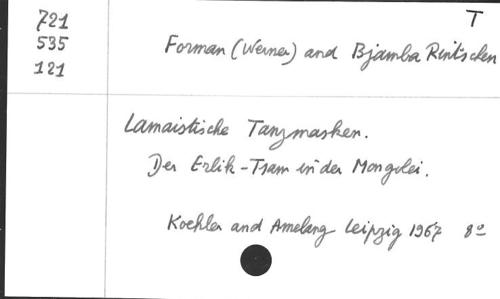 T
721
535
121
Forman (Werner) and Bjamba Rintschen
Lamaistische Tanzmasken.
Der Erlik-Tsam in der Mongolei.
Koehler and Amelang Leipzig 1967 8º